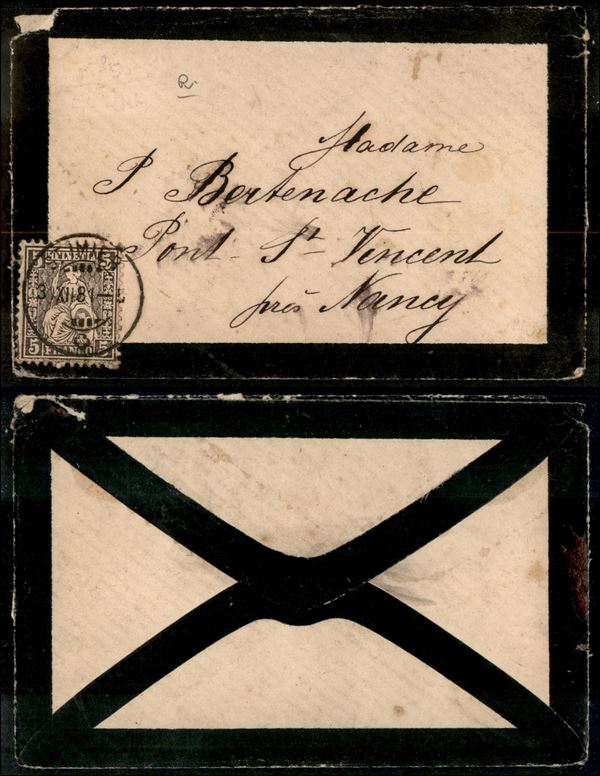 R.
Madame
P. Bertenache
Pont-St-Vincent
près Nancy
HELVETIA
5 FRANCO 5